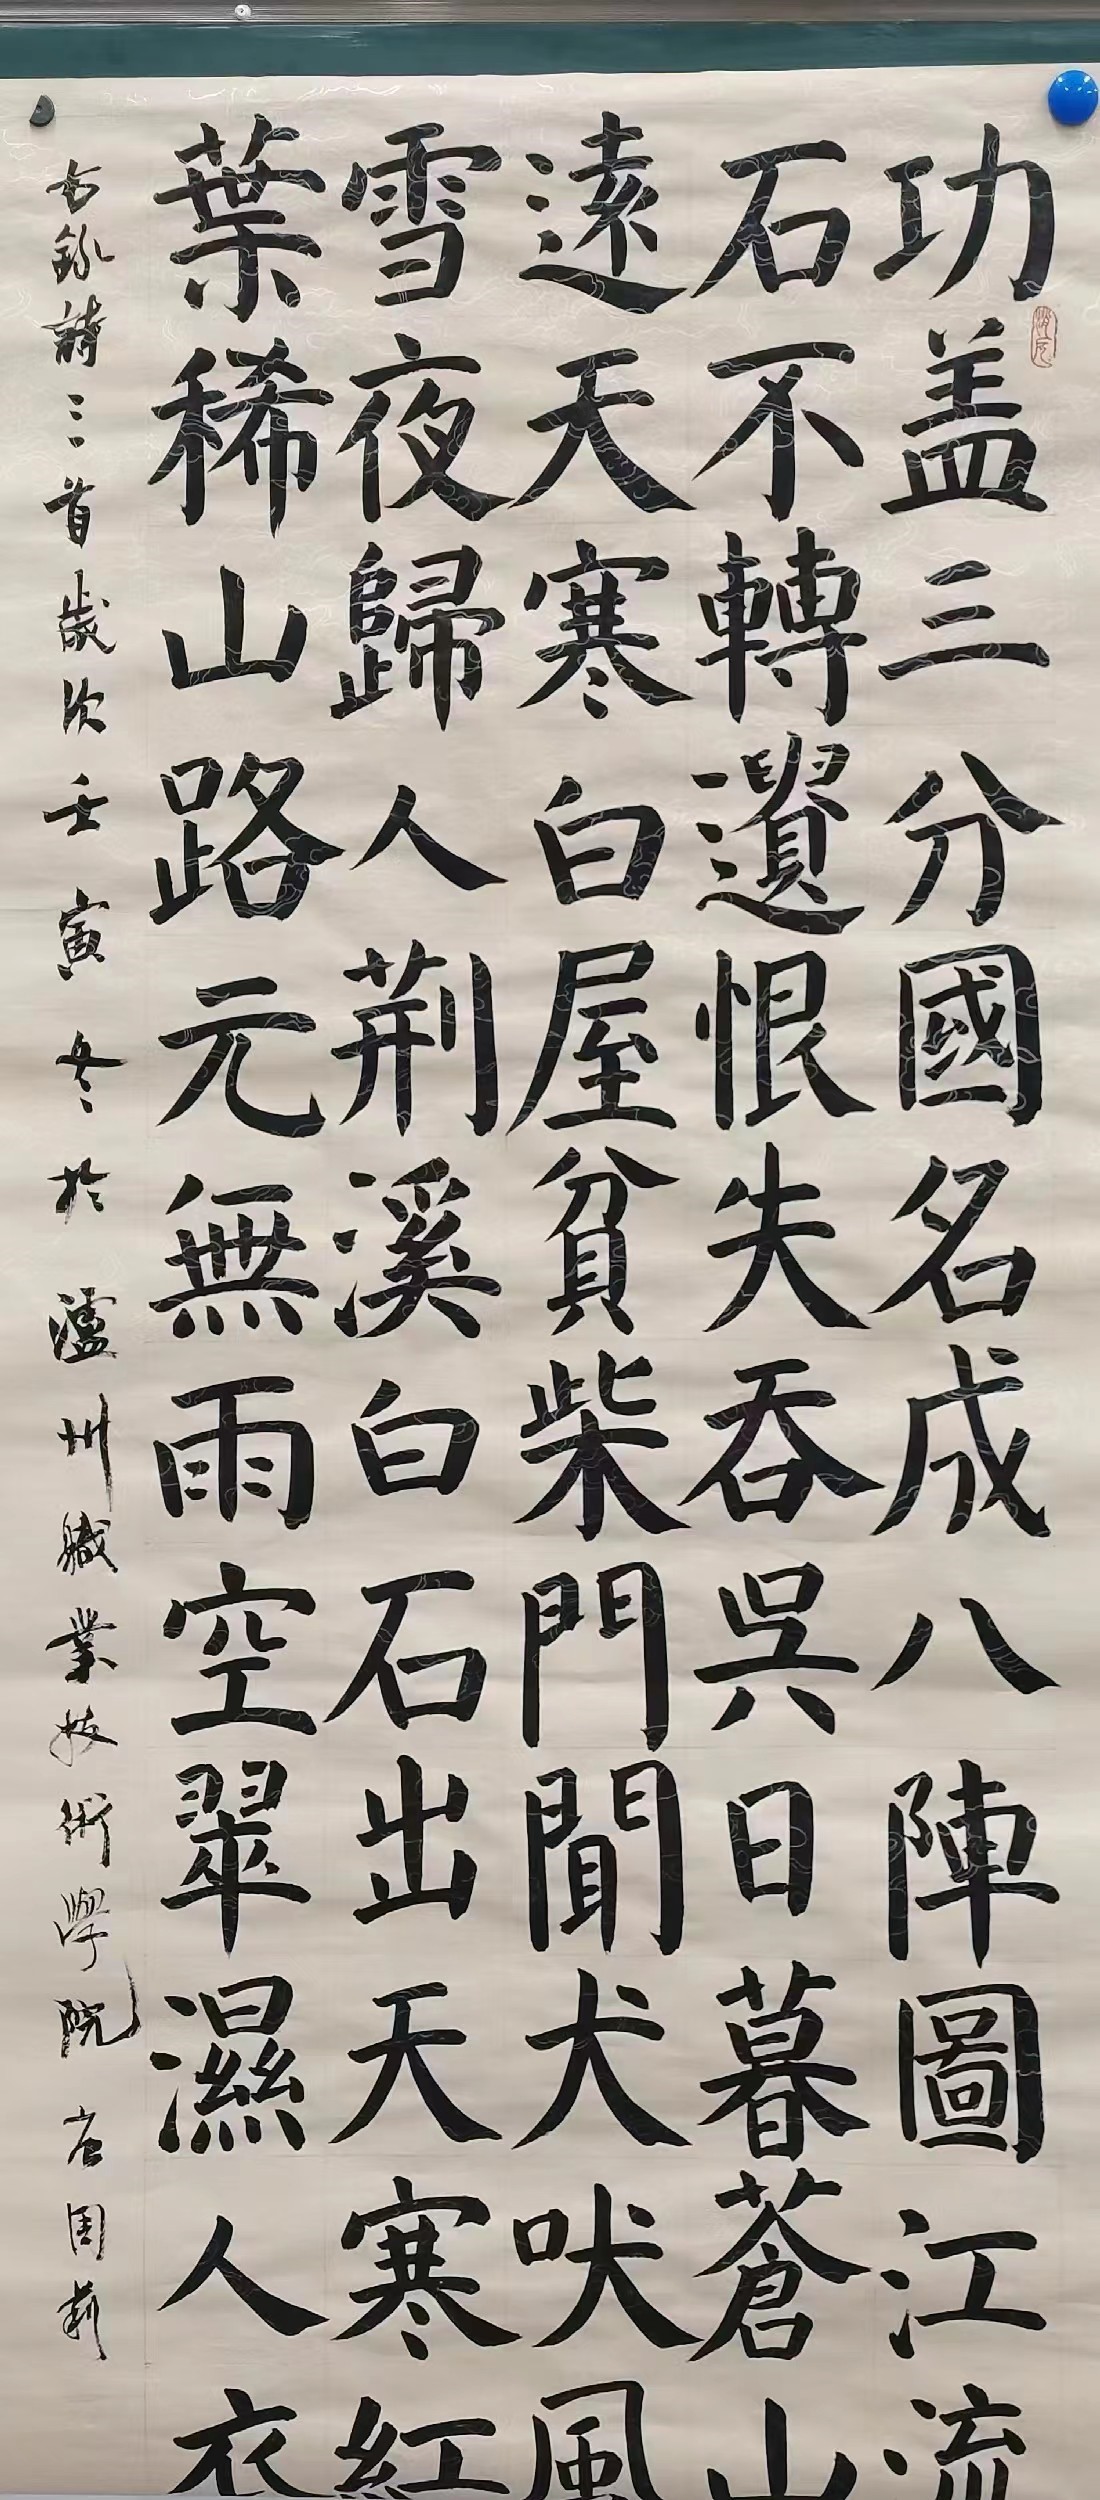 功盖三分國名成八陣圖江流
石不轉遺恨失吞吳日暮蒼山
遠天寒白屋貧柴門聞犬吠風
雪夜歸人荆溪白石出天寒紅
葉稀山路元無雨空翠濕人衣
古録詩三首歲次壬寅冬於瀘州職業技術學院